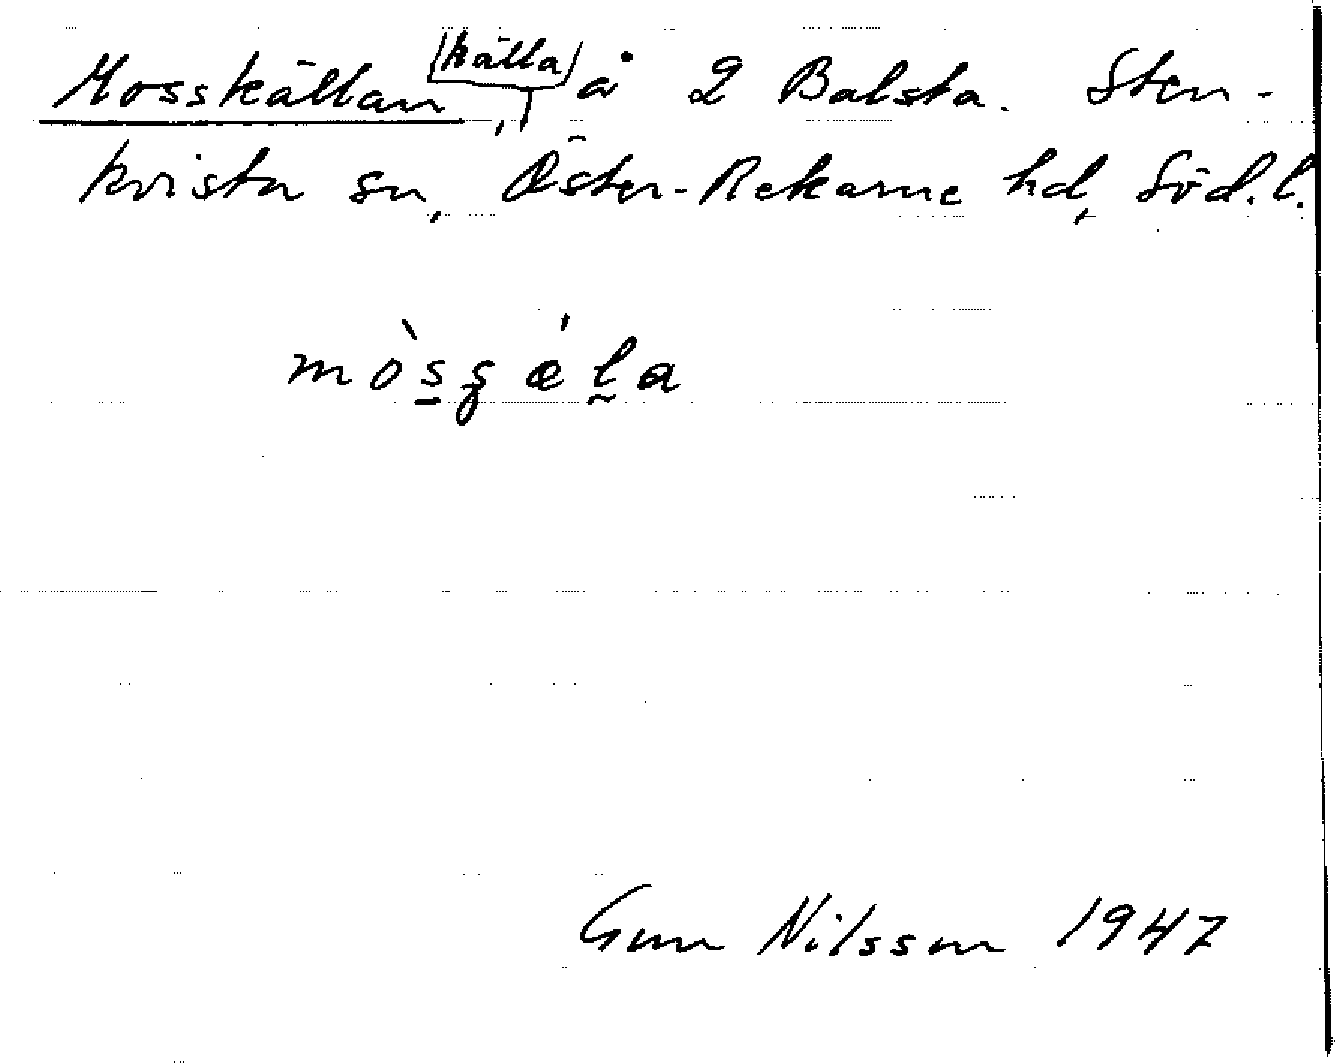 Mosskällan, källa å 2 Balsta. Sten-
kvista sn, Öster-Rekarne hd, Söd. l.
mòsꞔǽla
Gun Nilsson 1947